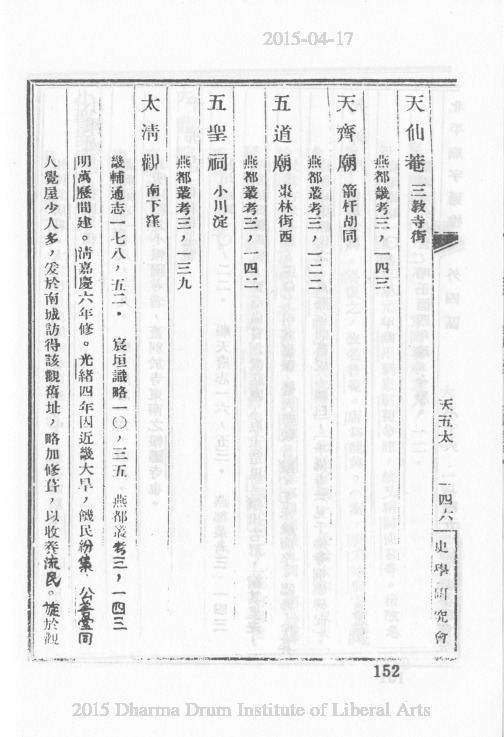 2015-04-17
天仙菴 三敎寺街
燕都叢考三，一四三
天齊廟 箭杆胡同
燕都叢考三，一二二
五道廟 棗林街西
燕都叢考三，一四二
五聖祠 小川淀
燕都叢考三，一三九
太淸觀 南下窪
畿輔通志一七八，五二． 宸垣識略一〇，三五 燕都叢考三，一四三
明萬歷間建。淸嘉慶六年修。光緒四年因近畿大旱，饑民紛集．公善堂司
人覺屋少人多，爰於南城訪得該觀舊址，略加修葺，以收養流民。旋於觀
天五太 一四六
史學硏究會
152
2015 Dharma Drum Institute of Liberal Arts